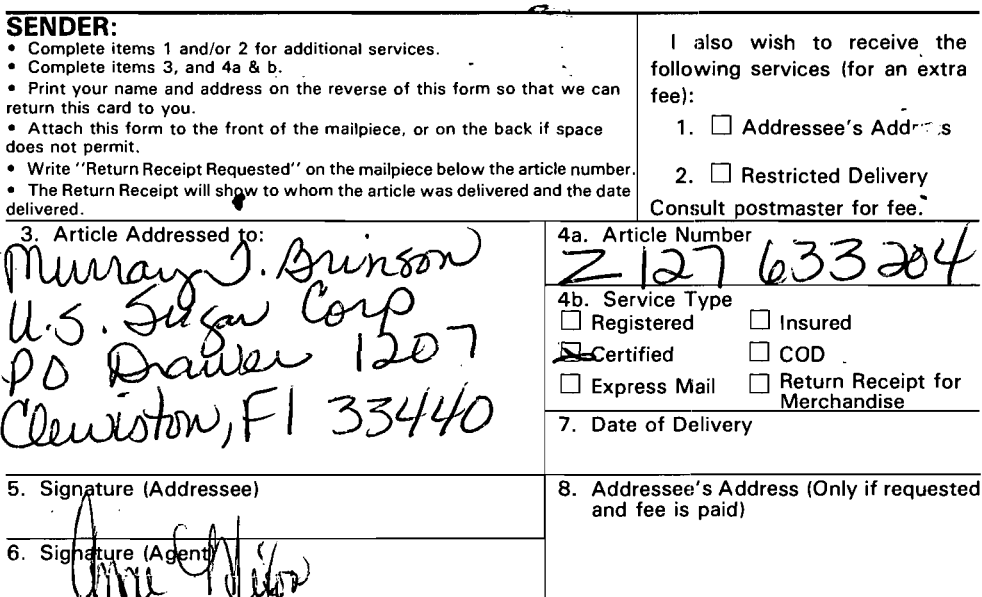 SENDER:
• Complete items 1 and/or 2 for additional services.
• Complete items 3, and 4a & b.
• Print your name and address on the reverse of this form so that we can
return this card to you.
• Attach this form to the front of the mailpiece, or on the back if space
does not permit.
• Write "Return Receipt Requested" on the mailpiece below the article number.
• The Return Receipt will show to whom the article was delivered and the date
delivered.
I also wish to receive the
following services (for an extra
fee):
1. ☐ Addressee's Address
2. ☐ Restricted Delivery
Consult postmaster for fee.
3. Article Addressed to:
Murray T. Brinson
U.S. Sugar Corp
PO Drawer 1207
Clewiston, Fl 33440
4a. Article Number
Z 127 633 204
4b. Service Type
☐ Registered ☐ Insured
☒ Certified ☐ COD
☐ Express Mail ☐ Return Receipt for
Merchandise
7. Date of Delivery
5. Signature (Addressee)
8. Addressee's Address (Only if requested
and fee is paid)
6. Signature (Agent)